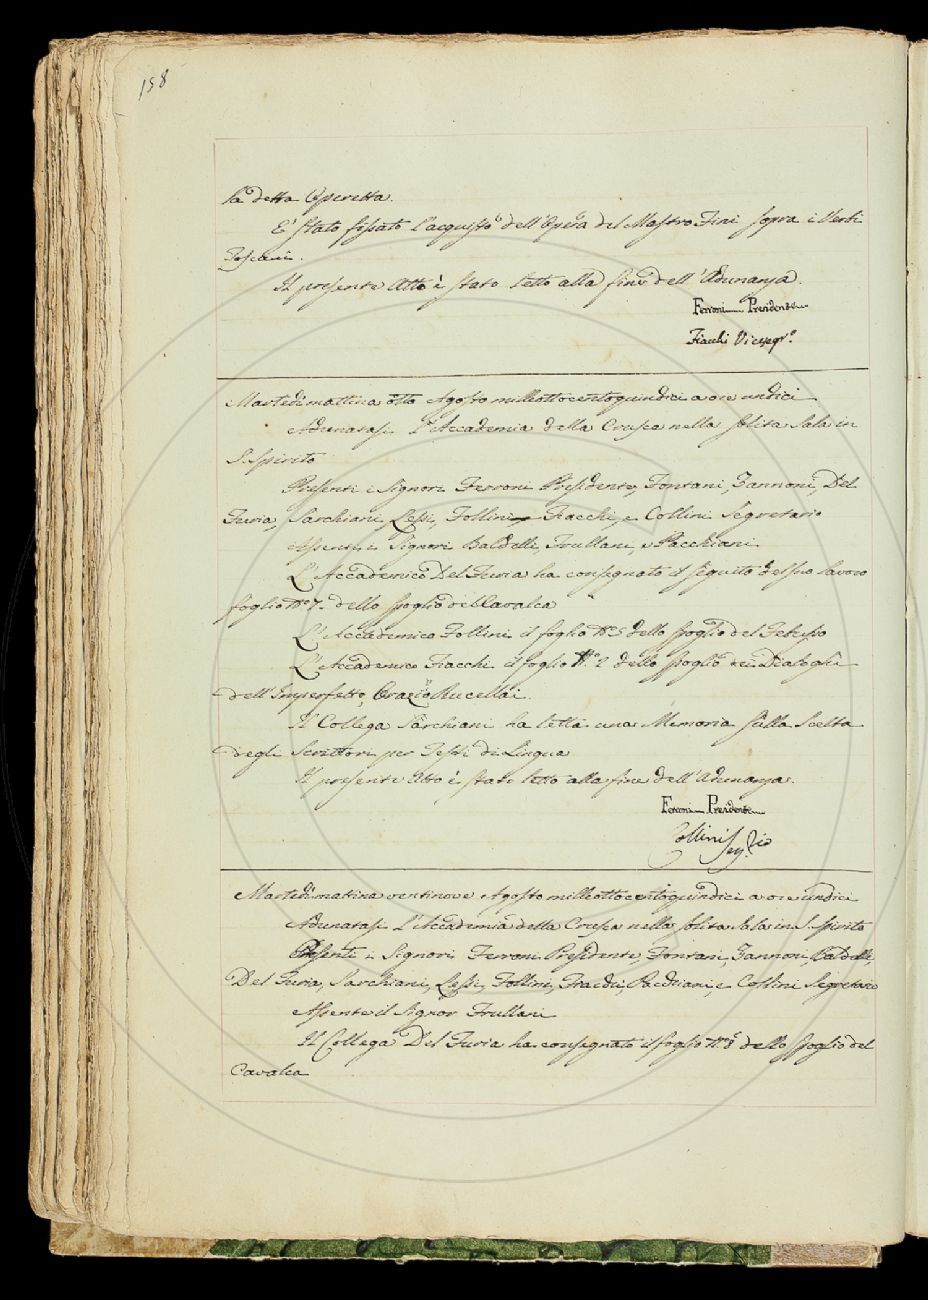 158
la detta Operetta.
E' stato fissato l'acquisto dell'Opera del Mastro Fini sopra i Verbi
Toscani.
Il presente Atto è stato letto alla fine dell'Adunanza.
Ferroni Presidente
Fiacchi Vicesegr.o
Martedì mattina otto Agosto milleottocentoquindici a ore undici
Adunatasi l'Accademia della Crusca nella solita Sala in
S. Spirito
Presenti i Signori Ferroni Presidente, Fontani, Zannoni, Del
Furia, Sarchiani, Lessi, Follini, Fiacchi, e Collini Segretario
Assenti i Signori Baldelli, Frullani, e Pacchiani
L'Accademico Del Furia ha consegnato il seguito del suo lavoro
foglio N.o 7. dello spoglio del Cavalca
L'Accademico Follini il foglio N.o 5 dello spoglio del
L'Accademico Fiacchi il foglio N.o 2 dello spoglio dei Dialoghi
dell'Imperfetto, Orazio Rucellai.
Il Collega Sarchiani ha letta una Memoria sulla Scelta
degli Scrittori per Testi di Lingua
Il presente Atto è stato letto alla fine dell'Adunanza.
Ferroni Presidente
Collini Seg.rio
Martedì matina ventinove Agosto milleottocentoquindici a ore undici
Adunatasi l'Accademia della Crusca nella solita Sala in S. Spirito
Presenti i Signori Ferroni Presidente, Fontani, Zannoni, Baldelli,
Del Furia, Sarchiani, Lessi, Follini, Fiacchi, Pacchiani, e Collini Segretario
Assente il Signor Frullani
Il Collega Del Furia ha consegnato il foglio N.o 8 dello spoglio del
Cavalca